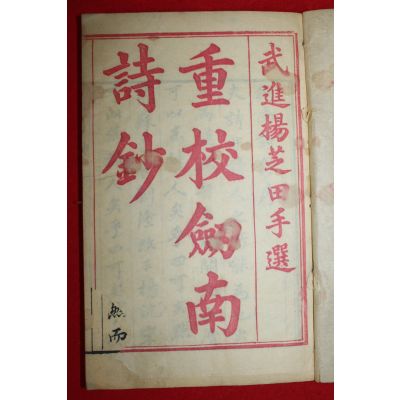 武進楊芝田手選
重校劒南
詩鈔